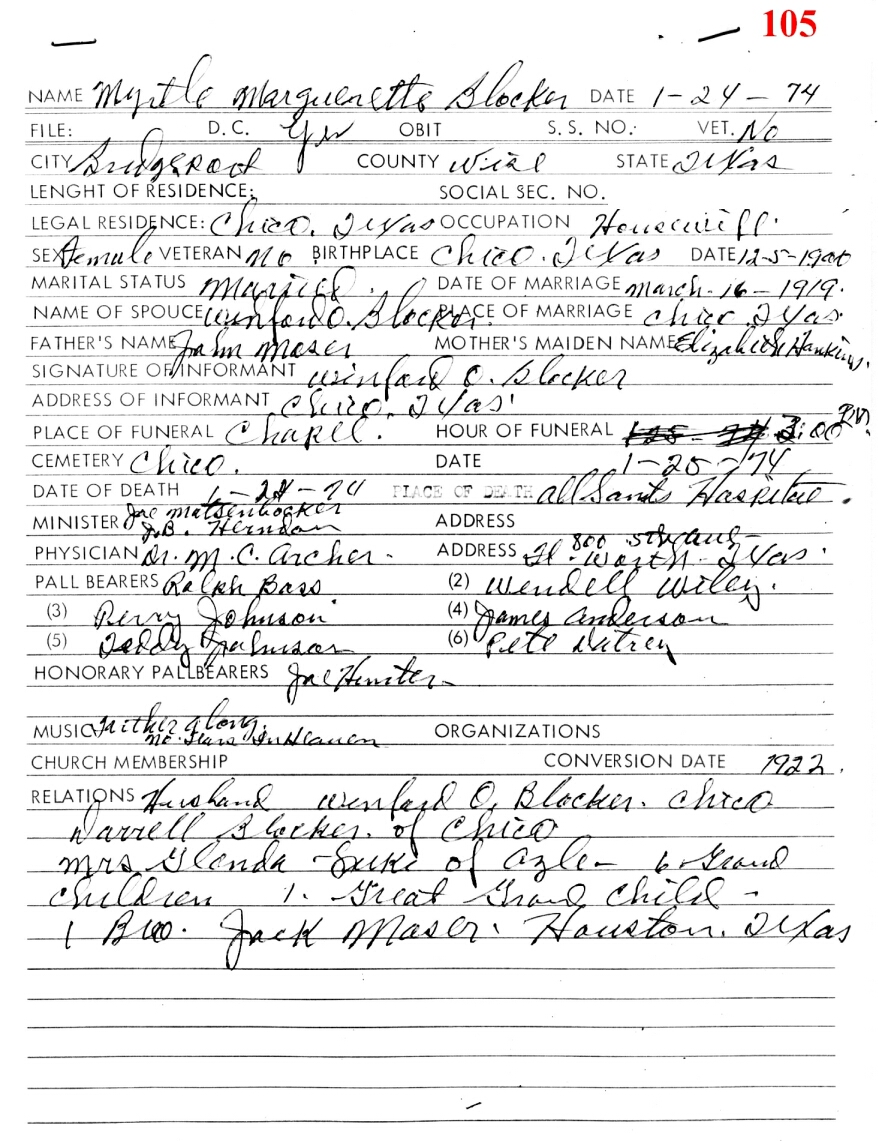 105
NAME Myrtle Marguerette Blocker DATE 1-24-74
FILE: D.C. Yes OBIT S.S. NO.: VET. No
CITY Bridgeport COUNTY Wise STATE Texas
LENGHT OF RESIDENCE: SOCIAL SEC. NO.
LEGAL RESIDENCE: Chico, Texas OCCUPATION Housewiff.
SEX Female VETERAN No BIRTHPLACE Chico. Texas DATE 12-5-1900
MARITAL STATUS Married. DATE OF MARRIAGE March-16-1919.
NAME OF SPOUCE Winford O. Blocker. PLACE OF MARRIAGE Chico Texas
FATHER'S NAME John Moser MOTHER'S MAIDEN NAME Elizabeth Hankins.
SIGNATURE OF INFORMANT Winford O. Blocker
ADDRESS OF INFORMANT Chico, Texas
PLACE OF FUNERAL Chapel. HOUR OF FUNERAL 3:00 P.M.
CEMETERY Chico. DATE 1-25-74
DATE OF DEATH 1-24-74 PLACE OF DEATH All Saints Hospital.
MINISTER Joe Matsenbocker ADDRESS
J.B. Herndon
PHYSICIAN Dr. M.C. Archer- ADDRESS 800 5th Ave-
Ft. Worth-Texas.
PALL BEARERS Ralph Bass (2) Wendell Wiley.
(3) Perry Johnson (4) James Anderson
(5) Teddy Johnson (6) Pete
HONORARY PALLBEARERS Joe Hunter-
MUSIC Farther Along. ORGANIZATIONS
No Tears In Heaven
CHURCH MEMBERSHIP CONVERSION DATE 1922.
RELATIONS Husband Winford O. Blocker. Chico
Darrell Blocker. of Chico
Mrs Glenda of Azle- 6 Grand
Children 1. Great Grand Child-
1 Bro. Jack Moser. Houston. Texas